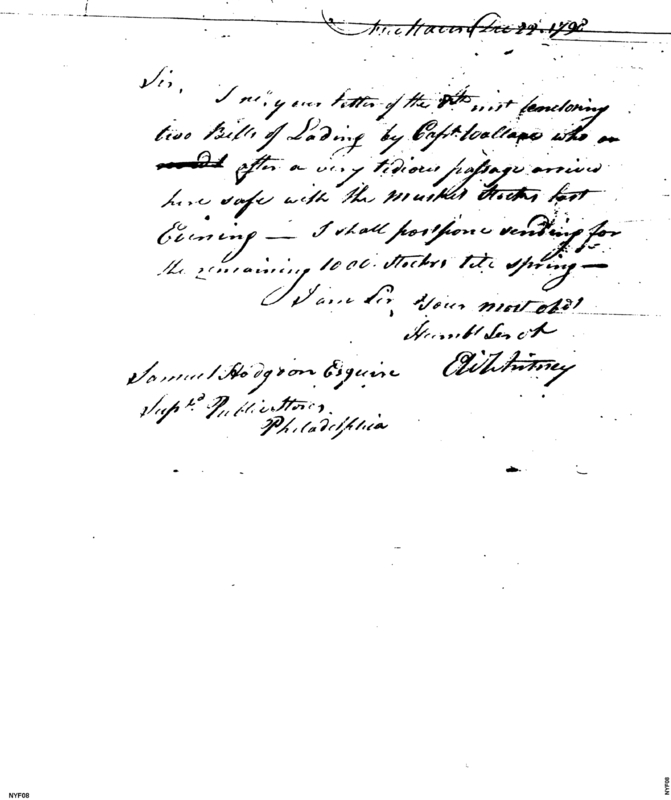 New Haven Dec 29. 1798
Sir,
I recd. your letter of the 8th inst enclosing
two Bills of Lading by Capt. Wallace who
after a very tedious passage arrived
here safe with the musket Stocks last
Evening — I shall postpone sending for
the remaining 1000. Stocks till spring —
I am Sir, Your most obdt
Humbl Servt
Eli Whitney
Samuel Hodgson Esquire
Supt. Public Stores
Philadelphia
NYF08
NYF08